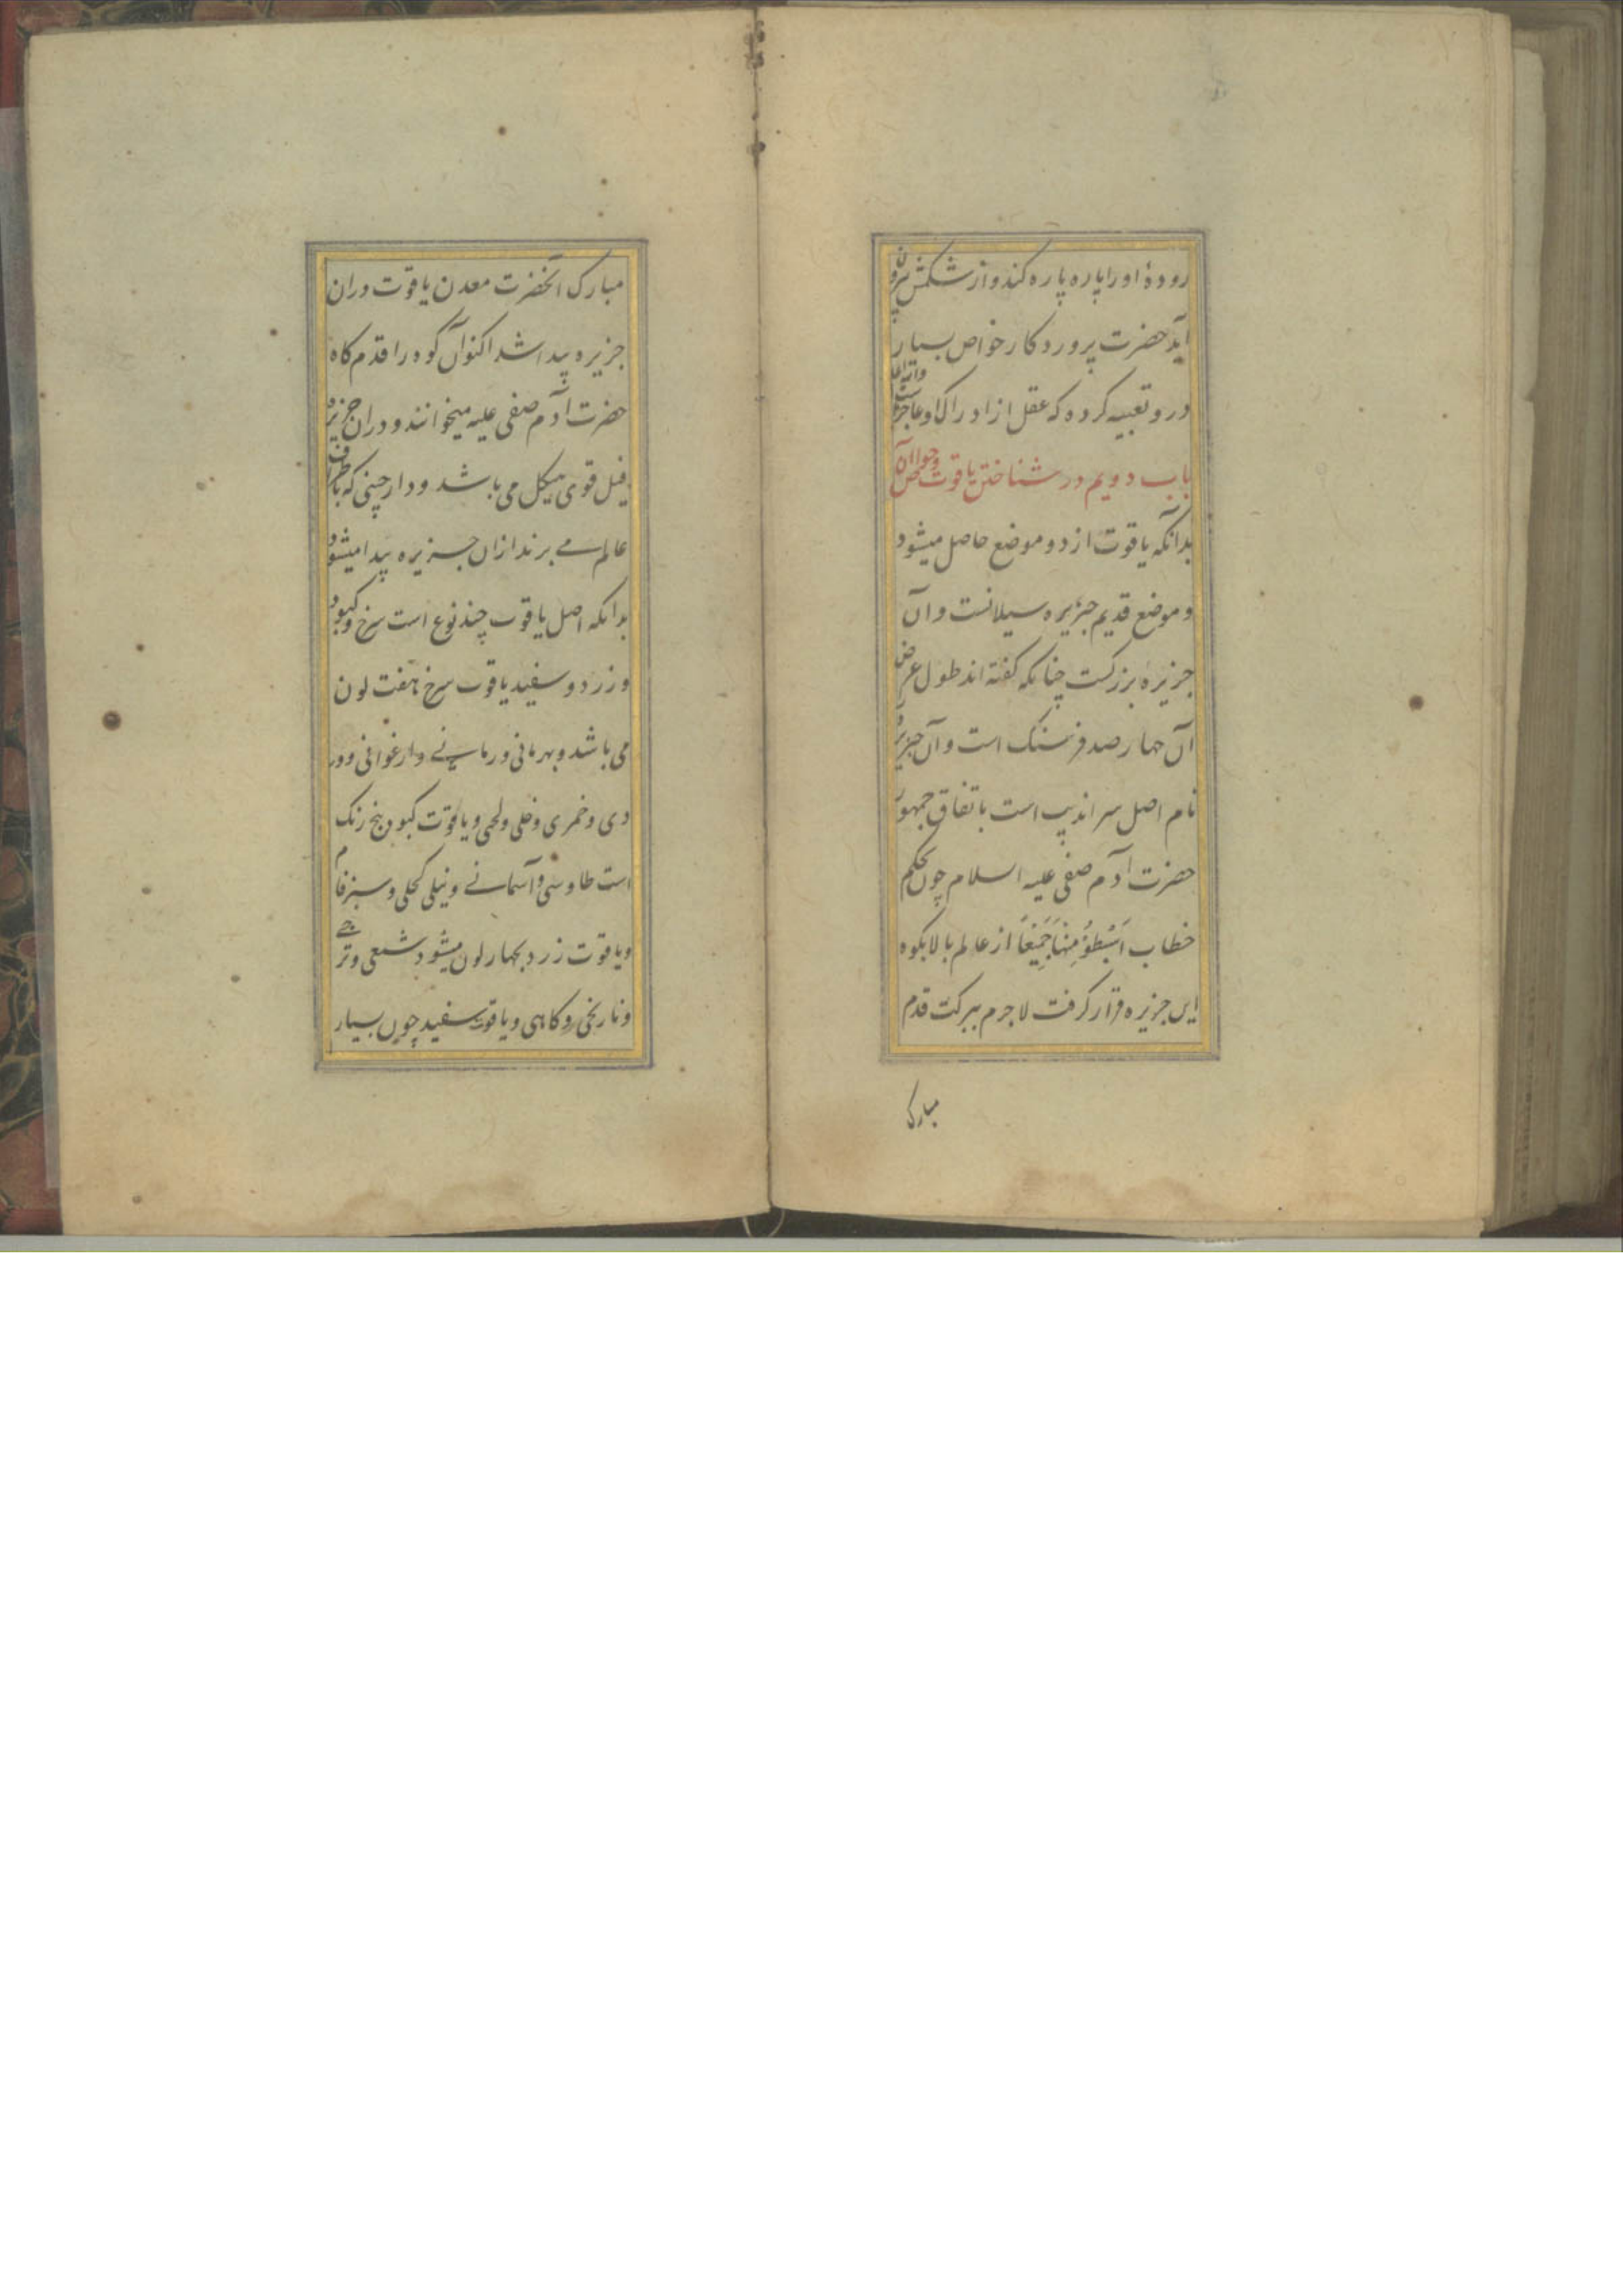 رودهٔ او را پاره پاره کند و از شکمش بیرون
آید حضرت پروردکار خواص بسیار
درو تعبیه کرده که عقل از ادراک او عاجز است
باب دویم در شناختن یاقوت و خواص آن
بدانکه یاقوت از دو موضع حاصل میشود
و موضع قدیم جزیره سیلانست و آن
جزیره بزرکست چنانکه کفته اند طول عرض
آن چهار صد فرسنک است و آن جزیره
نام اصل سراندیپ است باتفاق جمهور
حضرت آدم صفی علیه اسلام چون بحکم
خطاب اَسْبِطُوْ مِنْهَا جَمِیْعًا از عالم بالا بکوه
این جزیره قرار کرفت لاجرم ببرکت قدم
مبارک
مبارک آنحضرت معدن یاقوت دران
جزیره پیدا شد اکنوآن کوه را قدم کاه
حضرت آدم صفی علیه میخوانند و دران جزیره
فیل قوی هیکل می باشد و دارچینی که باطراف
عالم می برند ازان جزیره پیدا میشود
بدانکه اصل یاقوت چند نوع است سرخ و کبود
و زرد و سفید یاقوت سرخ هفت لون
می باشد و بهرمانی و رمانی و ارغوانی و ور
دی و خمری و خلی و لحمی و یاقوت کبود پنج رنک
است طاوسی و آسمانی و نیلی کحلی و سبزفام
و یاقوت زرد بچهار لون میشود شمعی و ترنجی
و نارنجی و کاهی و یاقوت سفید چون بسیار